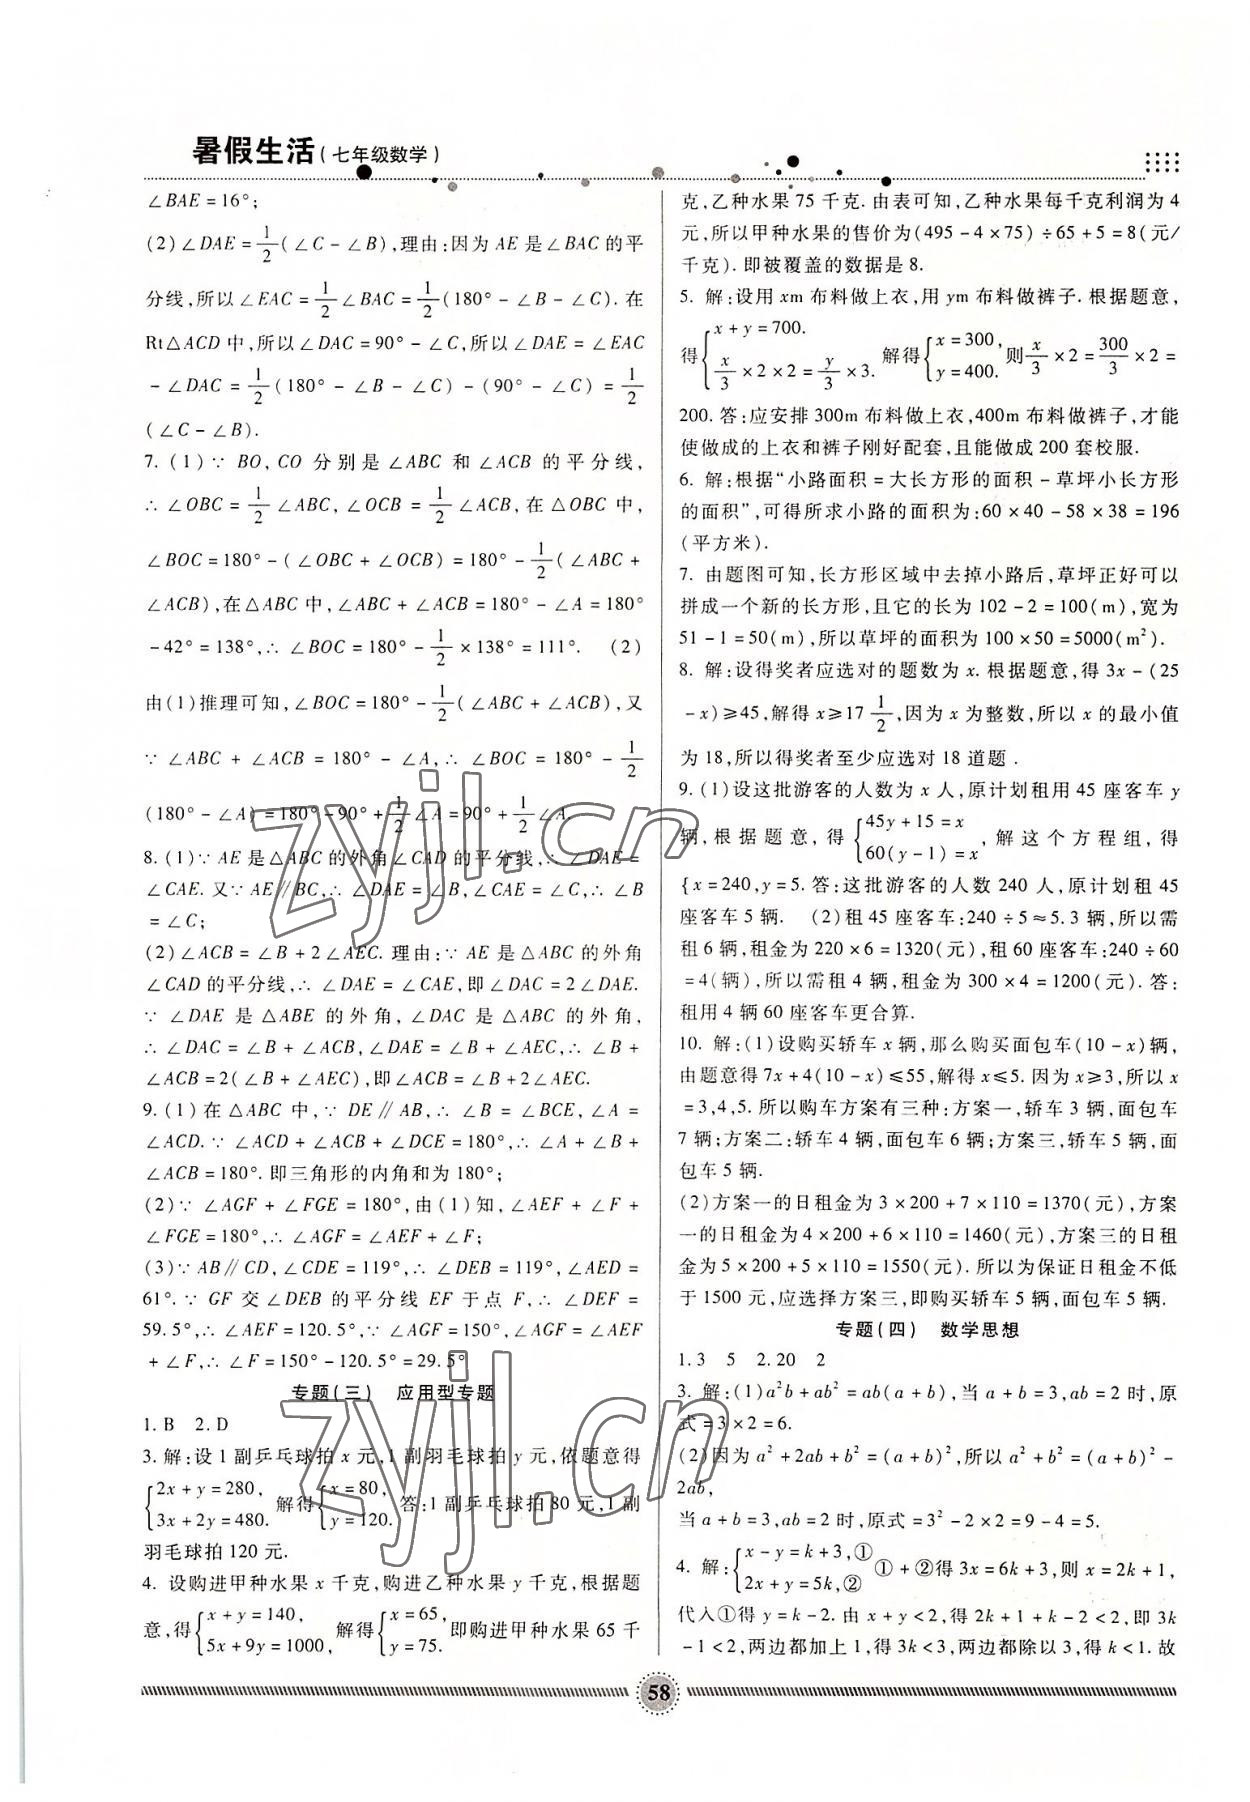 暑假生活(七年级数学)
∠BAE=16°;
(2)∠DAE=1/2(∠C-∠B),理由:因为 AE 是∠BAC 的平
分线,所以∠EAC=1/2∠BAC=1/2(180°-∠B-∠C). 在
Rt△ACD 中,所以∠DAC=90°-∠C,所以∠DAE=∠EAC
-∠DAC=1/2(180°-∠B-∠C)-(90°-∠C)=1/2
(∠C-∠B).
7. (1)∵ BO,CO 分别是∠ABC 和∠ACB 的平分线,
∴∠OBC=1/2∠ABC,∠OCB=1/2∠ACB,在△OBC 中,
∠BOC=180°-(∠OBC+∠OCB)=180°-1/2(∠ABC+
∠ACB),在△ABC 中,∠ABC+∠ACB=180°-∠A=180°
-42°=138°,∴∠BOC=180°-1/2×138°=111°. (2)
由(1)推理可知,∠BOC=180°-1/2(∠ABC+∠ACB),又
∵∠ABC+∠ACB=180°-∠A,∴∠BOC=180°-1/2
(180°-∠A)=180°-90°+1/2∠A=90°+1/2∠A.
8. (1)∵AE 是△ABC 的外角∠CAD 的平分线,∴∠DAE=
∠CAE. 又∵AE∥BC,∴∠DAE=∠B,∠CAE=∠C,∴∠B
=∠C;
(2)∠ACB=∠B+2∠AEC. 理由:∵AE 是△ABC 的外角
∠CAD 的平分线,∴∠DAE=∠CAE,即∠DAC=2∠DAE.
∵∠DAE 是△ABE 的外角,∠DAC 是△ABC 的外角,
∴∠DAC=∠B+∠ACB,∠DAE=∠B+∠AEC,∴∠B+
∠ACB=2(∠B+∠AEC),即∠ACB=∠B+2∠AEC.
9. (1)在△ABC 中,∵DE∥AB,∴∠B=∠BCE,∠A=
∠ACD. ∵∠ACD+∠ACB+∠DCE=180°,∴∠A+∠B+
∠ACB=180°. 即三角形的内角和为 180°;
(2)∵∠AGF+∠FGE=180°,由(1)知,∠AEF+∠F+
∠FGE=180°,∴∠AGF=∠AEF+∠F;
(3)∵AB∥CD,∠CDE=119°,∴∠DEB=119°,∠AED=
61°. ∵GF 交∠DEB 的平分线 EF 于点 F,∴∠DEF=
59.5°,∴∠AEF=120.5°,∵∠AGF=150°,∠AGF=∠AEF
+∠F,∴∠F=150°-120.5°=29.5°
专题(三) 应用型专题
1. B 2. D
3. 解:设 1 副乒乓球拍 x 元,1 副羽毛球拍 y 元,依题意得
{2x+y=280, 3x+2y=480. 解得{x=80, y=120. 答:1 副乒乓球拍 80 元,1 副
羽毛球拍 120 元.
4. 设购进甲种水果 x 千克,购进乙种水果 y 千克,根据题
意,得{x+y=140, 5x+9y=1000, 解得{x=65, y=75. 即购进甲种水果 65 千
克,乙种水果 75 千克. 由表可知,乙种水果每千克利润为 4
元,所以甲种水果的售价为(495-4×75)÷65+5=8(元/
千克). 即被覆盖的数据是 8.
5. 解:设用 xm 布料做上衣,用 ym 布料做裤子. 根据题意,
得{x+y=700. x/3×2×2=y/3×3. 解得{x=300, y=400. 则x/3×2=300/3×2=
200. 答:应安排 300m 布料做上衣,400m 布料做裤子,才能
使做成的上衣和裤子刚好配套,且能做成 200 套校服.
6. 解:根据“小路面积=大长方形的面积-草坪小长方形
的面积”,可得所求小路的面积为:60×40-58×38=196
(平方米).
7. 由题图可知,长方形区域中去掉小路后,草坪正好可以
拼成一个新的长方形,且它的长为 102-2=100(m),宽为
51-1=50(m),所以草坪的面积为 100×50=5000(m²).
8. 解:设得奖者应选对的题数为 x. 根据题意,得 3x-(25
-x)≥45,解得 x≥17 1/2,因为 x 为整数,所以 x 的最小值
为 18,所以得奖者至少应选对 18 道题.
9. (1)设这批游客的人数为 x 人,原计划租用 45 座客车 y
辆,根据题意,得{45y+15=x 60(y-1)=x,解这个方程组,得
{x=240,y=5. 答:这批游客的人数 240 人,原计划租 45
座客车 5 辆. (2)租 45 座客车:240÷5≈5.3 辆,所以需
租 6 辆,租金为 220×6=1320(元),租 60 座客车:240÷60
=4(辆),所以需租 4 辆,租金为 300×4=1200(元). 答:
租用 4 辆 60 座客车更合算.
10. 解:(1)设购买轿车 x 辆,那么购买面包车(10-x)辆,
由题意得 7x+4(10-x)≤55,解得 x≤5. 因为 x≥3,所以 x
=3,4,5. 所以购车方案有三种:方案一,轿车 3 辆,面包车
7 辆;方案二:轿车 4 辆,面包车 6 辆;方案三,轿车 5 辆,面
包车 5 辆.
(2)方案一的日租金为 3×200+7×110=1370(元),方案
一的日租金为 4×200+6×110=1460(元),方案三的日租
金为 5×200+5×110=1550(元). 所以为保证日租金不低
于 1500 元,应选择方案三,即购买轿车 5 辆,面包车 5 辆.
专题(四) 数学思想
1. 3 5 2. 20 2
3. 解:(1)a²b+ab²=ab(a+b),当 a+b=3,ab=2 时,原
式=3×2=6.
(2)因为 a²+2ab+b²=(a+b)²,所以 a²+b²=(a+b)²-
2ab,
当 a+b=3,ab=2 时,原式=3²-2×2=9-4=5.
4. 解:{x-y=k+3,① 2x+y=5k,② ①+②得 3x=6k+3,则 x=2k+1,
代入①得 y=k-2. 由 x+y<2,得 2k+1+k-2<2,即 3k
-1<2,两边都加上 1,得 3k<3,两边都除以 3,得 k<1. 故
58
zyjl.cn
zyjl.cn